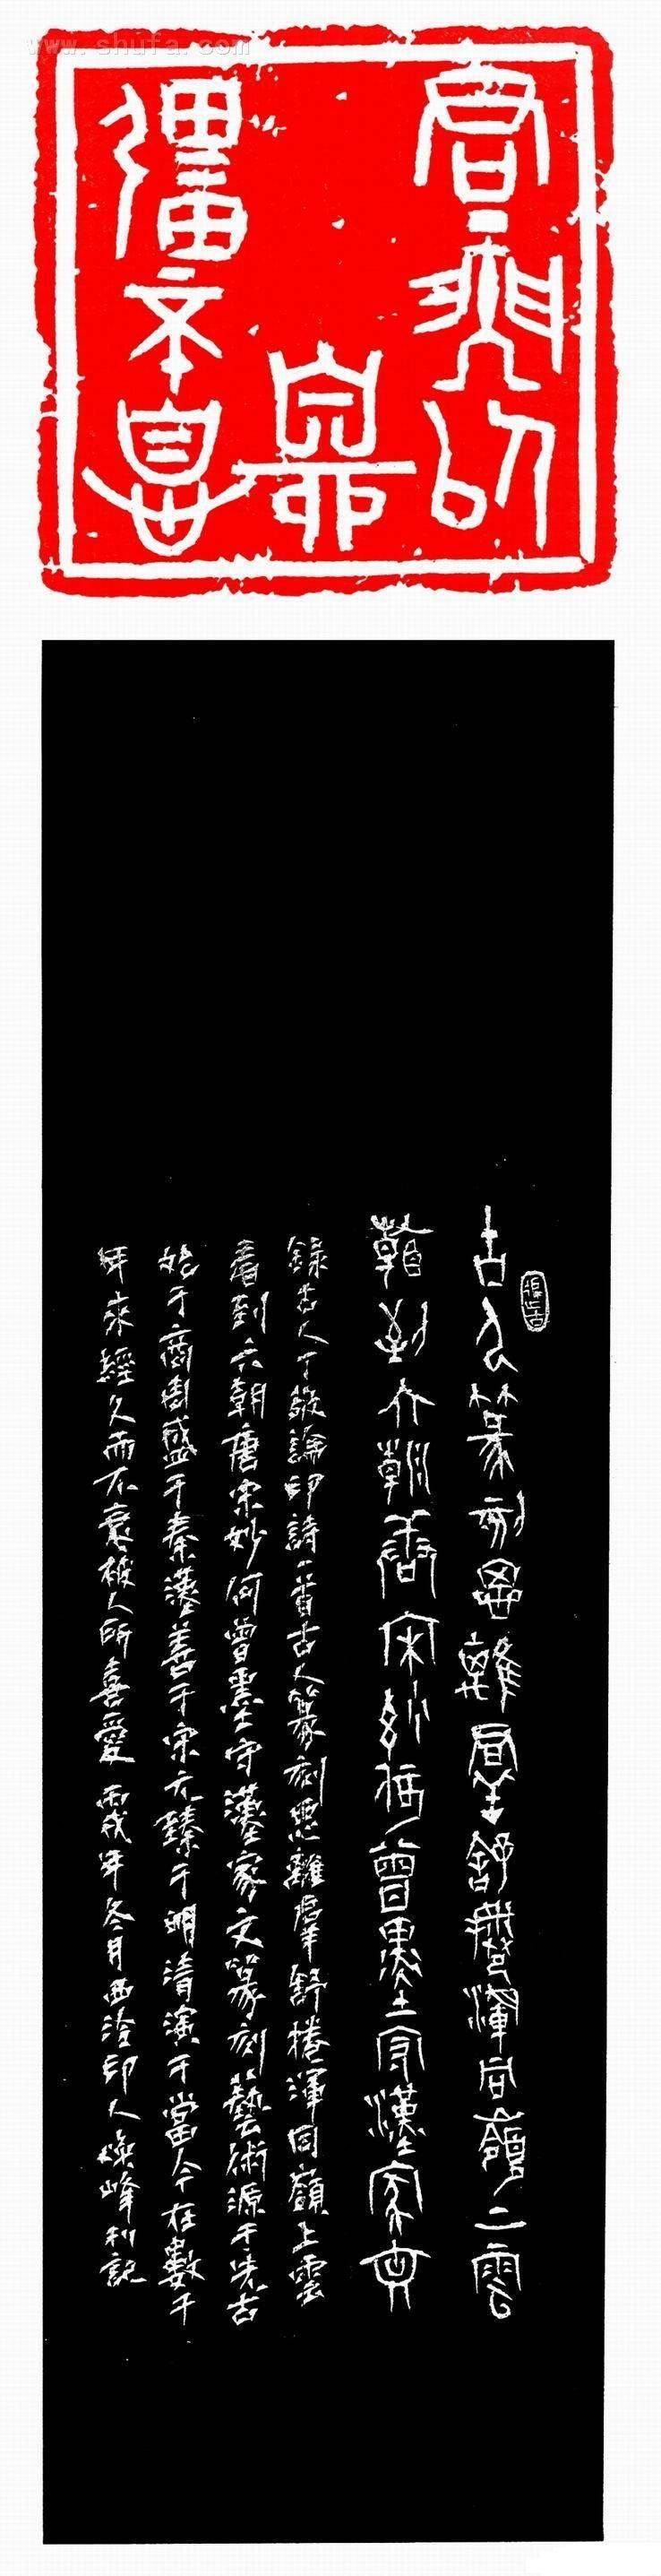 www.shufa.com
古人篆刻思離羣舒卷渾同嶺上雲
看到六朝唐宋妙何曾墨守漢家文
錄古人丁敬論印詩一首古人篆刻思離羣舒捲渾同嶺上雲
看到六朝唐宋妙何曾墨守漢家文篆刻藝術源于先古
始于商周盛于秦漢善于宋元臻于明清演于當今在數千
年來經久而不衰被人所喜愛 丙戌年冬月西泠印人煥峰記